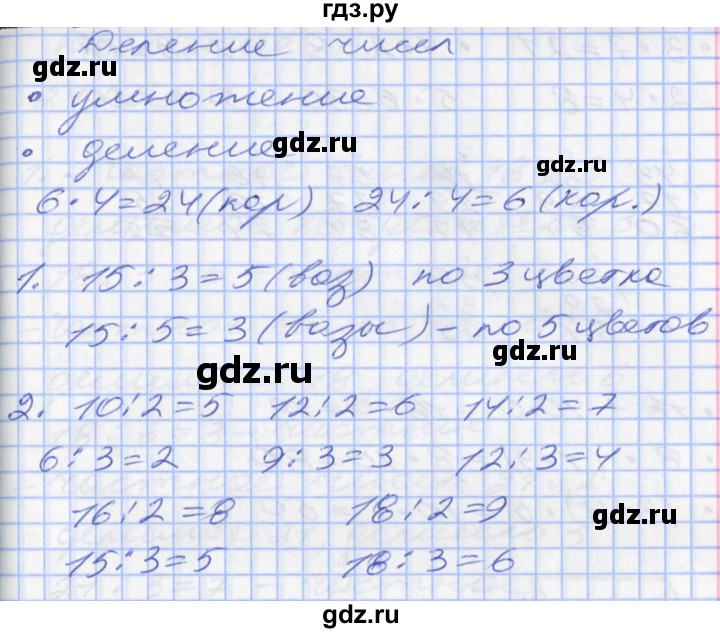 гдз.ру
Деление чисел
gdz.ru
• умножение
• деление
gdz.ru
6 · 4 = 24 (кор) 24 : 4 = 6 (кор.)
1. 15 : 3 = 5 (ваз) по 3 цветка
15 : 5 = 3 (вазы) – по 5 цветов
gdz.ru
gdz.ru
2. 10 : 2 = 5 12 : 2 = 6 14 : 2 = 7
6 : 3 = 2 9 : 3 = 3 12 : 3 = 4
16 : 2 = 8 18 : 2 = 9
gdz.ru
15 : 3 = 5 18 : 3 = 6
gdz.ru
gdz.ru